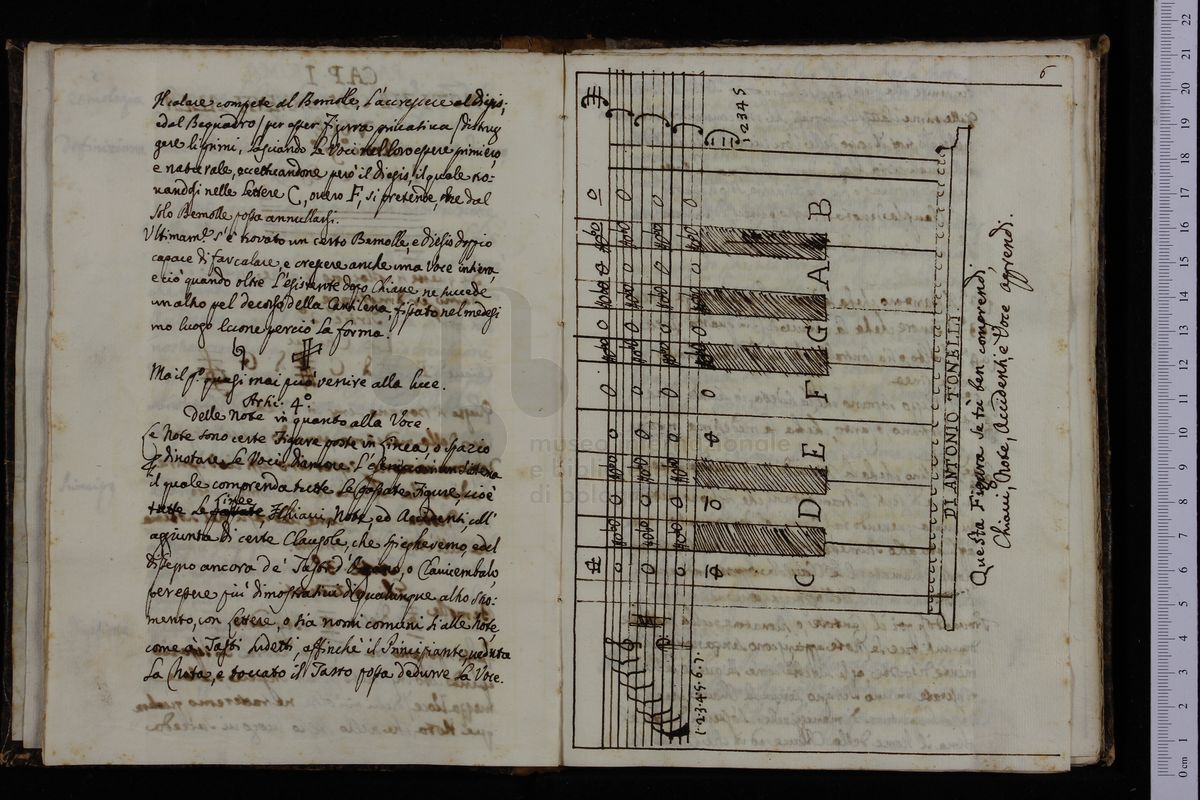 CAP I
Il calare compete al Bemolle, L'accrescere al diesis;
e dal Bequadro / per esser Figura privativa / distrug
gere li primi, lasciando Le Voci nel loro essere primiero
e naturale, eccettuandone però il diesis, il quale tro:
vandosi nelle Lettere C, overo F, si pretende, che dal
solo Bemolle possa annullarsi.
Ultimam.e s'è trovato un certo Bemolle, e diesis doppio
capace di far calare, e crescere anche una Voce intiera,
e ciò quando oltre L'esistente dopo Chiave ne succede
un altro pel decorso della Cantilena fissato nel medesi
mo luogo
perciò La forma.
Ma il p.o quasi mai può venire alla luce.
Arti: 4.o
Delle Note in quanto alla Voce
Le Note sono certe Figure poste in Linea, o spazio
dinotare Le Voci.
il quale comprenda tutte Le
Figure cioè
tutte Le Linee, Chiavi, Note, ed Accidenti coll'
aggiunta di certe Clausole, che spiegheremo, e del
disegno ancora de' Tasti d'
o Clavicembalo,
per essere più dimostrativi di qualunque altro Stro:
mento, con Lettere, o sia nomi comuni sì alle Note
come a' Tasti sudetti, affinchè il Principiante veduta
La Nota, e toccato il Tasto possa dedurre La Voce.
6
1 2 3 4 5
C D E F G A B
1. 2. 3. 4. 5. 6. 7.
DI ANTONIO TONELLI
Questa Figura se tu ben comprendi
Chiavi, Note, Accidenti, e Voce apprendi.
museo internazionale
e biblioteca
di bologna